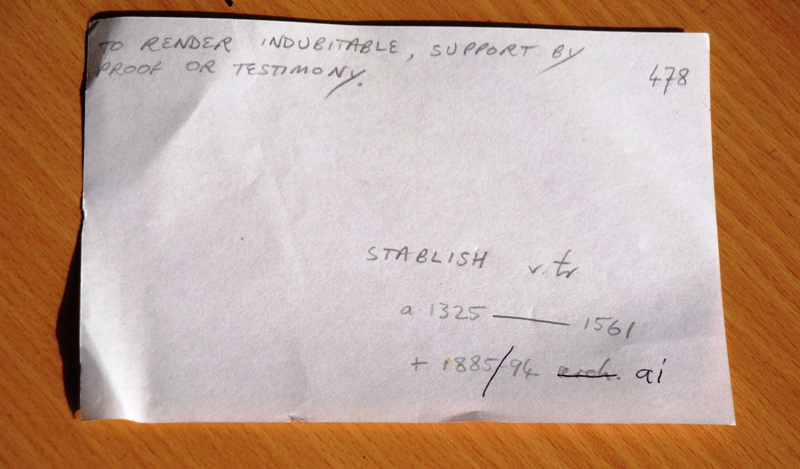 TO RENDER INDUBITABLE, SUPPORT BY
PROOF OR TESTIMONY.
478
STABLISH v. tr
a. 1325 — 1561
+ 1885/94 arch. ai